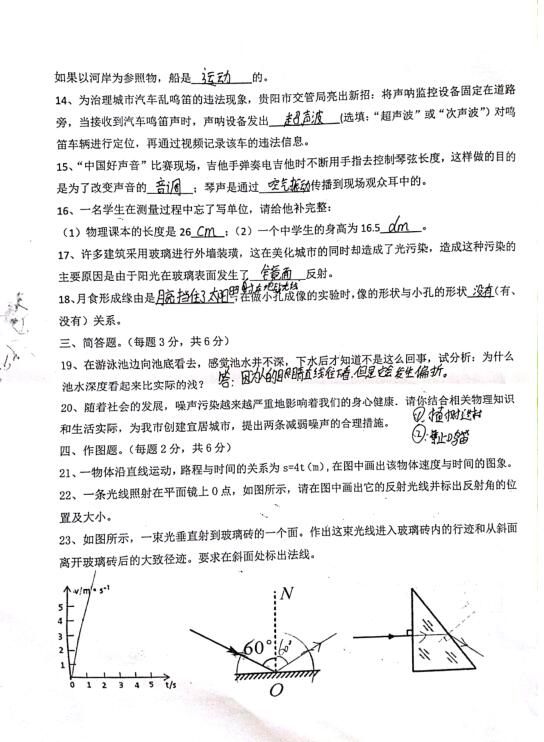 如果以河岸为参照物，船是 运动 的。
14、为治理城市汽车乱鸣笛的违法现象，贵阳市交管局亮出新招：将声呐监控设备固定在道路
旁，当接收到汽车鸣笛声时，声呐设备发出 超声波 (选填：“超声波”或“次声波”）对鸣
笛车辆进行定位，再通过视频记录该车的违法信息。
15、“中国好声音”比赛现场，吉他手弹奏电吉他时不断用手指去控制琴弦长度，这样做的目的
是为了改变声音的 音调 ；琴声是通过 空气振动 传播到现场观众耳中的。
16、一名学生在测量过程中忘了写单位，请给他补完整：
（1）物理课本的长度是 26 cm ；（2）一个中学生的身高为 16.5 dm 。
17、许多建筑采用玻璃进行外墙装璜，这在美化城市的同时却造成了光污染，造成这种污染的
主要原因是由于阳光在玻璃表面发生了 镜面 反射。
18、月食形成缘由是 挡住了太阳 ；在做小孔成像的实验时，像的形状与小孔的形状 没有 (有、
没有）关系。
三、简答题。（每题 3 分，共 6 分）
19、在游泳池边向池底看去，感觉池水并不深，下水后才知道不是这么回事，试分析：为什么
池水深度看起来比实际的浅？ 答：因为 会发生偏折。
20、随着社会的发展，噪声污染越来越严重地影响着我们的身心健康．请你结合相关物理知识
和生活实际，为我市创建宜居城市，提出两条减弱噪声的合理措施。 ①植树造林
②禁止鸣笛
四、作图题。（每题 2 分，共 6 分）
21、一物体沿直线运动，路程与时间的关系为 s=4t（m），在图中画出该物体速度与时间的图象。
22、一条光线照射在平面镜上 O 点，如图所示，请在图中画出它的反射光线并标出反射角的位
置及大小。
23、如图所示，一束光垂直射到玻璃砖的一个面。作出这束光线进入玻璃砖内的行迹和从斜面
离开玻璃砖后的大致径迹。要求在斜面处标出法线。
v/m·s⁻¹
5
4
3
2
1
0 1 2 3 4 5 t/s
N
60° 60°
O